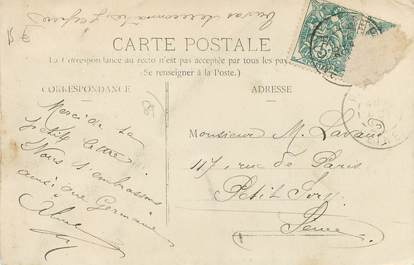 CARTE POSTALE
La Correspondance au recto n'est pas acceptée par tous les pays
Se renseigner à la Poste.)
CORRESPONDANCE
ADRESSE
Merci de ta
petite lettre
Nous t'embrassons
ainsi que Germaine
Monsieur M.
117, rue de Paris
Petit Ivry
Seine